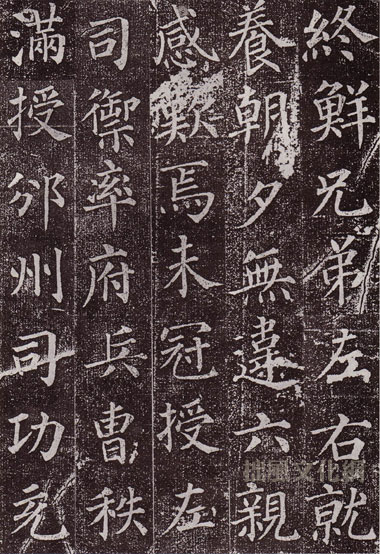 終鮮兄弟左右就
養朝夕無違六親
感歎焉未冠授左
司禦率府兵曹秩
滿授邠州司功充
風文化網